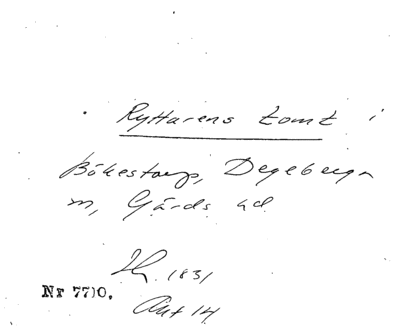 Ryttarens tomt i
Bökestorp, Degeberga
sn, Gärds hd
1831
Nr 7710.
Akt 14